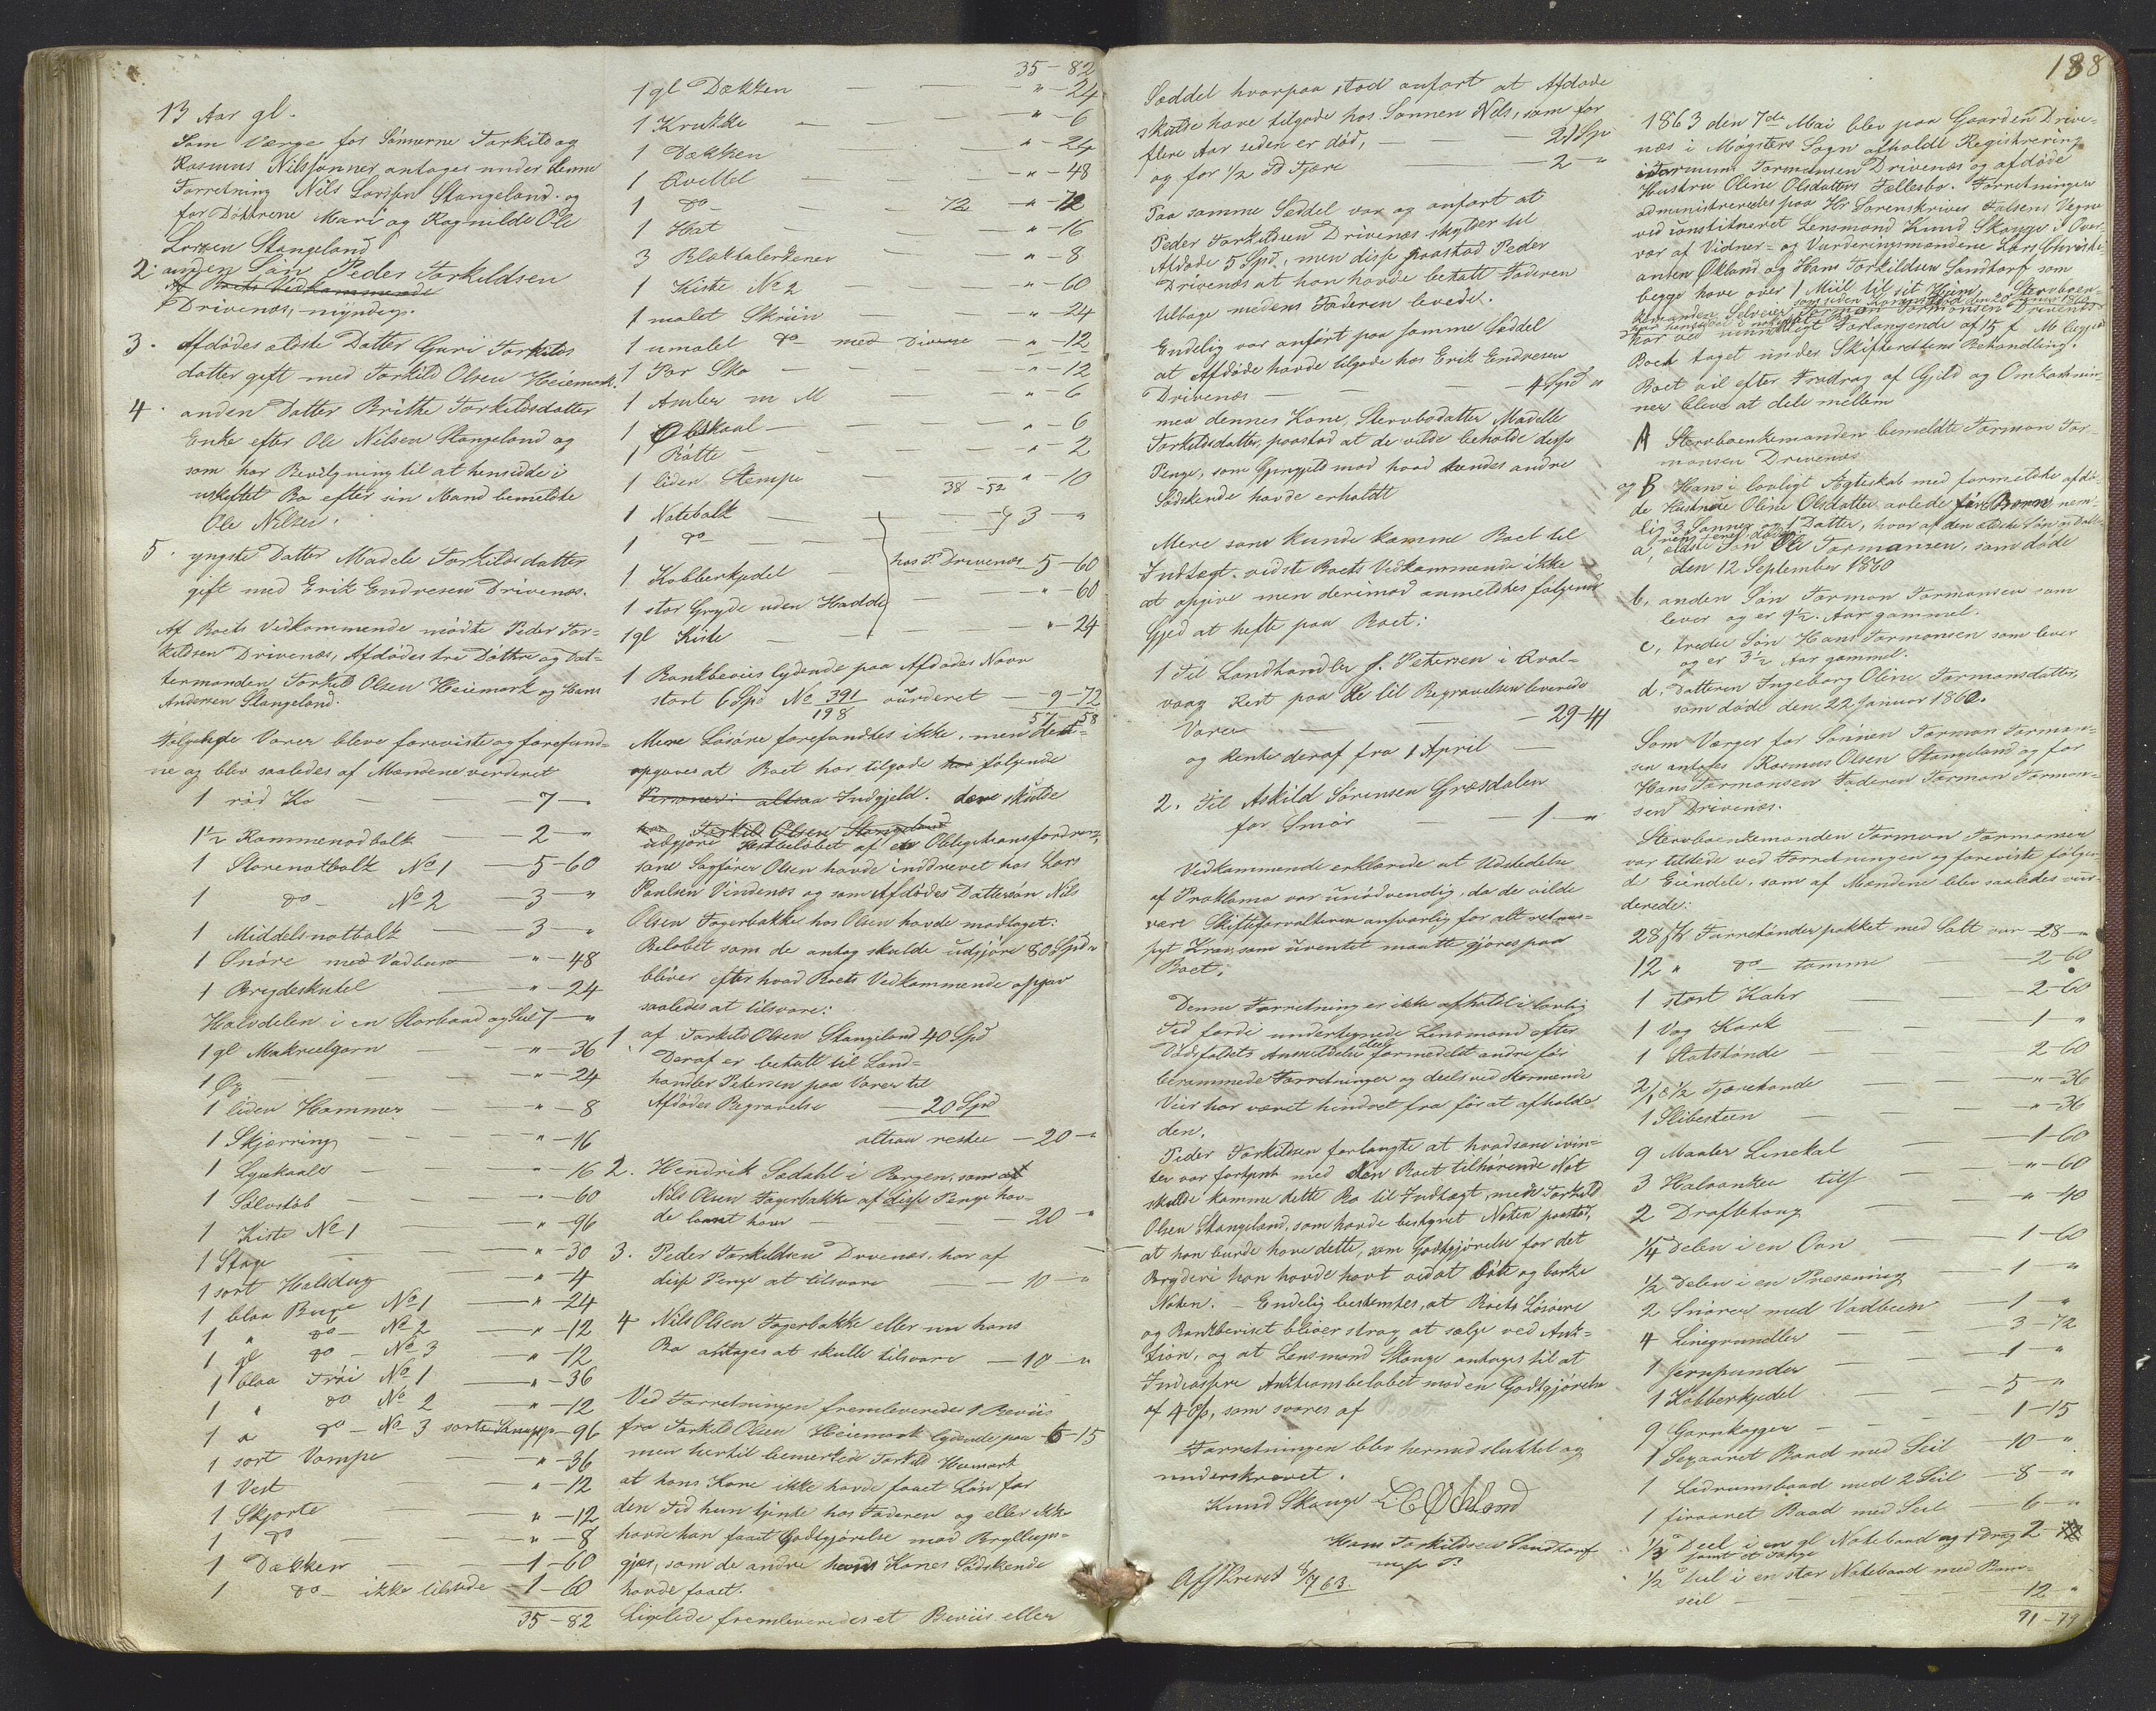 13 Aar gl.
Som Værge for Sönnerne Torkild og
Rasmus Nilssönner antages under denne
Forretning Nils Larssen Stangeland og
for Döttrene Mari og Ragnilde Ole
Larsen Stangeland
2. anden Sön Peder Torkildsen
Af Boets Vedkommende
Drivenæs, myndig.
3. Afdödes ældste Datter Guri Torkilds
datter gift med Torkild Olsen Heiemark.
4. anden Datter Brithe Torkildsdatter
Enke efter Ole Nilsen Stangeland og
som har Bevilgning til at hensidde i
uskiftet Bo efter sin Mand bemeldte
Ole Nilsen.
5. yngste Datter Madele Torkildsdatter
gift med Erik Endresen Drivenæs.
Af Boets Vedkommende mödte Peder Tor=
kildsen Drivenæs, Afdödes tre Döttre og Dat=
termanden Torkild Olsen Heiemark og Hans
Andersen Stangeland.
Fölgende Varer bleve foreviste og forefund=
ne og blev saaledes af Mændene værderet
1 röd Ko — 7 — "
1½ Rammenodbolk — 2 — "
1 Storenotbolk No 1 — 5-60
1 do No 2 — 3 — "
1 Middelsnotbolk — 3 — "
1 Snöre med Vadbeen — " — 48
1 Brydeskutel — " — 24
Halvdelen i en Storbaad og Seil 7 — "
1 gl Makrelgarn — " — 36
1 Öx — " — 24
1 liden Hammer — " — 8
1 Skjærring — " — 16
1 Lysekaale — " 16
1 Sölvstöb — " — 60
1 Kiste No 1 — " — 96
1 Stage — " — 30
1 sort Halsdug — " — 4
1 blaa Buxe No 1 — " — 24
1 " do — No 2 — " — 12
1 gl do — No 3 — " — 12
1 blaa Tröi No 1 — " — 36
1 " do No 2 — " — 12
1 " do — No 3 sorte Knapp — 96
1 sort Vampe — " — 36
1 Vest — " — 12
1 Skjorte — " — 12
1 do — " — 8
1 Dækken — 1 — 60
1 do — ikke tilstede — 1 — 60
35 — 82
35 — 82
1 gl Dækken — " — 24
1 Krukke — " — 6
1 Dækken — " — 24
1 Qvittel — " — 48
1 do — 72 " — 72
1 Hat — " — 16
3 Bloktalerkener — " — 8
1 Kiste No 2 — " — 60
1 malet Skriin — " — 24
1 umalet do med Diverse — " — 12
1 Par Sko — " — 12
1 Amler m M — " — 6
1 Ölskaal — " — 6
1 Bötte — " — 2
1 liden Stempe — 38-52 " — 10
1 Notebolk — 3 — "
1 do —
1 Kobberkjedel — hos P. Drivenæs 5 — 60
1 stor Gryde uden Hadde — " — 60
1 gl Kiste — " — 24
1 Bankbeviis lydende paa Afdödes Navn
stort 6 Spd No 391/198 vurderet — 9 — 72
57 — 58
Mere Lösöre forefandtes ikke, men det
opgaves at Boet har tilgode hos fölgende
Personer: altsaa Indgjeld. dere skulde
hos Torkild Olsen Stangeland
udgjöre Restbelöbet af en Obligationsfordring,
som Sagförer Olsen havde inddrevet hos Lars
Paulsen Vindenæs og som Afdödes Dattersön Nils
Olsen Fagerbakke hos Olsen havde modtaget:
Belöbet som de antog skulde udgjöre 80 Spd "
bliver efter hvad Boets Vedkommende opgav
saaledes at tilsvare:
1. af Torkild Olsen Stangeland 40 Spd
Deraf er betalt til Land=
handler Petersen paa Varer til
Afdödes Begravelse — 20 Spd
altsaa rester — 20 — "
2. Hendrik Sædahl i Bergen, som af
Nils Olsen Fagerbakke af disse Penge hav=
de laant ham — 20 — "
3. Peder Torkildsen Drivenæs, har af
disse Penge at tilsvare — 10 — "
4 Nils Olsen Fagerbakke eller nu hans
Bo antages at skulle tilsvare — 10 — "
Ved Forretningen fremleveredes 1 Beviis
fra Torkild Olsen Heiemark lydende paa 6 — 15
men hertil bemærkede Torkild Heiemark
at hans Kone ikke havde faaet Lön for
den Tid hun tjente hos Faderen og eller ikke
havde han faaet Godtgjörelse mod Bryllups=
gjör, som de andre hans Kones Södskende
havde faaet.
Ligeledes fremleveredes et Beviis eller
Seddel hvorpaa stod anfört at Afdöde
skulde have tilgode hos Sönnen Nils, som for
flere Aar siden er död, — 21 Sp
og for ½ Td Tjære — 2 — "
Paa samme Seddel var og anfört at
Peder Torkildsen Drivenæs skylder til
Afdöde 5 Spd, men disse paastod Peder
Drivenæs at han havde betalt Faderen
tilbage medens Faderen levede.
Endelig var anfört paa samme Seddel
at Afdöde havde tilgode hos Erik Endresen
Drivenæs — 4 Spd "
men dennes Kone, Stervbodatter Madelle
Torkildsdatter, paastod at de vilde beholde disse
Penge, som Gjengjeld mod hvad hendes andre
Södskende havde erholdt
Mere som kunde komme Boet til
Indtægt vidste Boets Vedkommende ikke
at opgive men derimod anmeldtes fölgende
Gjed at hefte paa Boet:
1 Til Landhandler J. Petersen i Qval=
vaag Rest paa de til Begravelsen leverede
Varer — 29-44
og Rente deraf fra 1 April —
2. Til Askild Sörensen Græsdalen
for Smör — 1 — "
Vedkommende erklærede at Udstedelse
af Proklama var unödvendig, da de vilde
være Skifteforvalteren ansvarlig for alt
Krav, som uventet maatte gjöres paa
Boet.
Denne Forretning er ikke afholdt i lovlig
Tid fordi undertegnede Lensmand efter
Dödsfaldets Anmeldelse deels formedelst andre för
berammede Forretninger og deels ved stormende
Veir har været hindret fra för at afholde
den.
Peder Torkildsen forlangte at hvad som i vin=
ter var fortjent med den Boet tilhörende Not
skulde komme dette Bo til Indtægt, mens Torkild
Olsen Stangeland, som havde bestyret Noten paastod,
at han burde have dette, som Godtgjörelse for det
Bryderi han havde havt ved at böte og barke
Noten. — Endelig bestemtes, at Boets Lösöre
og Bankbeviset bliver strax at sælge ved Auk=
tion, og at Lensmand Skauge antages til at
Indcassere Auktionsbelöbet mod en Godtgjörelse
af 4 %, som svares af
Forretningen blev hermed sluttet og
underskrevet.
Knud Skauge L C Økland
Hans Torkildsen Sandtorf
m p P.
Afskrevet 8/7 63
188
1863 den 7de Mai blev paa Gaarden Drive=
næs i Møgsters Sogn afholdt Registrering
i Tormun Tormonsen Drivenæs og afdöde
Hustru Oline Olsdatters Fællesbo. Forretningen
administreredes paa Hr Sorenskriver Falsens Vegne
ved constitueret Lensmand Knud Skauge i Over=
vær af Vidner= og Vurderingsmændene Lars Christi=
ansen Økland og Hans Torkildsen Sandtorf som
begge have over 1 Miil til sit Hjem. Stervboen=
kemanden Selveier Tormon Tormonsen Drivenæs
har ved mundtligt Forlangende af 15 f. M begjært
Boet taget under Skifterettens Behandling.
Boet vil efter Fradrag af Gjeld og Omkostnin=
ner blive at dele mellem
A Stervboenkemanden bemeldte Tormon Tor=
monsen Drivenæs
og B Hans i lovligt Ægteskab med formeldte afdö=
de Hustrue Oline Olsdatter, avlede fire Børn nem=
lig 3 Sönner og 1 Datter, hvor af den ældste Sön og Datte=
ren ere döde
a, ældste Sön Ole Tormonsen, som döde
den 12 September 1860
b, anden Sön Tormon Tormonsen som
lever og er 9½ Aar gammel.
c, tredie Sön Hans Tormonsen som lever
og er 3½ Aar gammel.
d. Datteren Ingeborg Oline Tormonsdatter,
som döde den 22 Januar 1860.
Som Værger for Sönnen Tormon Tormon=
sen antoges Rasmus Olsen Stangeland og for
Hans Tormonsen Faderen Tormon Tormon=
sen Drivenæs.
Stervboenkemanden Tormon Tormonsen
var tilstede ved Forretningen og foreviste fölgen=
de Eiendele, som af Mændene blev saaledes vur=
derede:
28 Stk Furretönder pakket med Salt vur — 28 — "
12 " do — tomme — 2 — 60
1 stort Kahr — 2 — 60
1 Vog Kork — 1 — "
1 Statstönde — 2 — 60
2/1 & 1/2 Tjæretönde — " — 36
1 Slibesteen — " — 36
9 Maaler Linekal — 1 — 60
3 Halvanker tils — " — 60
2 Draftehong — " — 40
¼ Delen i en Ovn — 1 — 60
½ Delen i en Presenning — 1 — "
2 Snörer med Vadbeen — 1 — "
4 Linegrundler — 3 — 72
1 Jernpunder — 1 — "
1 Kobberkjedel — 5 — "
9 Garnkagger — 1 — 15
1 Sexaaret Baad med Seil — 10 — "
1 Lædrumsbaad med 2 Seil — 8 — "
1 firaaret Baad med Seil — 6 — "
⅓ Deel i en gl Notebaad og 1 Drag 2 — "
samt et
½ Deel i en stor Notebaad med
seil — 12 "
91 — 79